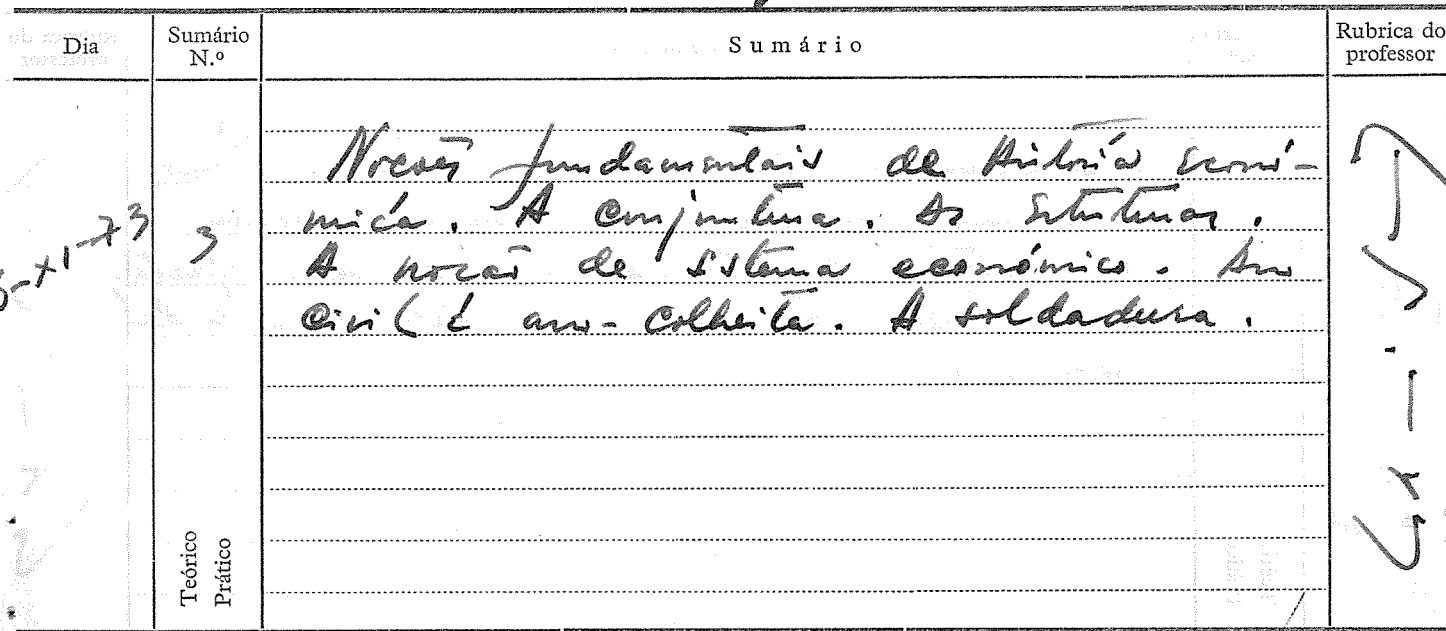 Dia
Sumário N.º
Sumário
Rubrica do professor
Noções fundamentais de História econó-
mica. A conjuntura. As estruturas.
-XI-73
3
A noção de sistema económico. Ano
civil e ano-colheita. A soldadura.
Teórico
Prático